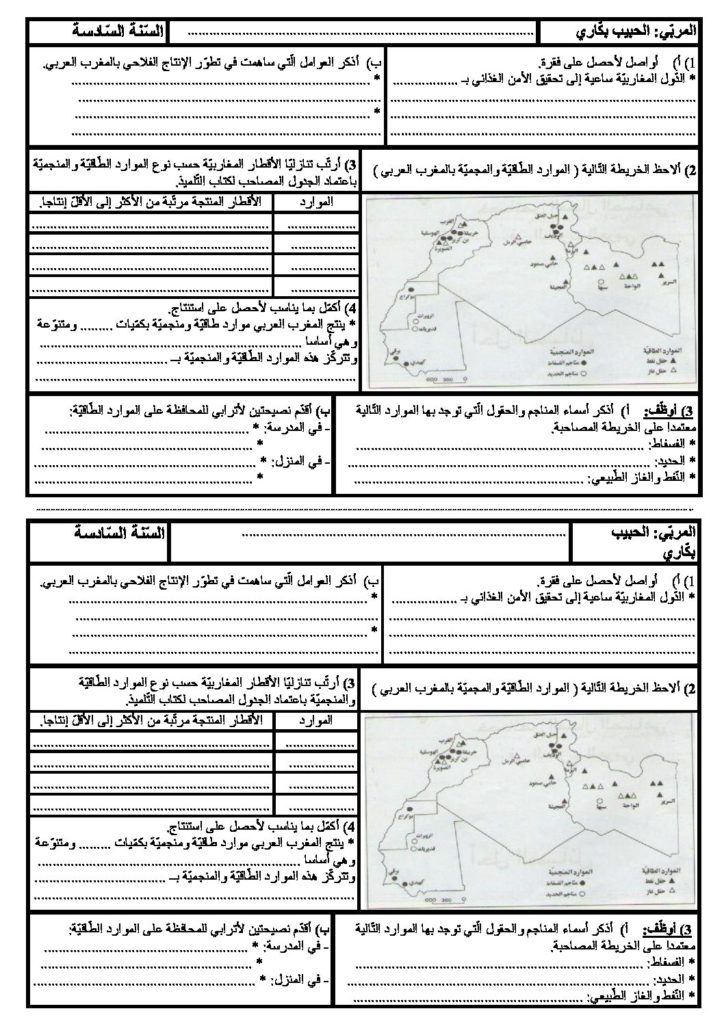 المربّي: الحبيب بكّاري ........................ السّنة السّادسة
1) أ) أواصل لأحصل على فقرة.
* الدّول المغاربيّة ساعية إلى تحقيق الأمن الغذائي بـ ................
ب) أذكر العوامل الّتي ساهمت في تطوّر الإنتاج الفلاحي بالمغرب العربي.
* ................
* ................
2) ألاحظ الخريطة التّالية ( الموارد الطّاقيّة والمجميّة بالمغرب العربي )
المغرب
خريبقة
اليوسفية
بن كرير
الصويرة
حاسي الرمل
حاسي مسعود
العجيلة
بوكراع
الرويبات
السرير
الواحة
سبها
الموارد الطاقية
حقل نفط
حقل غاز
الموارد المنجمية
مناجم الفسفاط
مناجم الحديد
0 300 600
3) أرتّب تنازليّا الأقطار المغاربيّة حسب نوع الموارد الطّاقيّة والمنجميّة
باعتماد الجدول المصاحب لكتاب التّلميذ.
الموارد الأقطار المنتجة مرتّبة من الأكثر إلى الأقلّ إنتاجا.
4) أكمّل بما يناسب لأحصل على استنتاج.
* ينتج المغرب العربي موارد طاقيّة ومنجميّة بكميّات ......... ومتنوّعة
وهي أساسا ................
وتتركّز هذه الموارد الطّاقيّة والمنجميّة بـ ................
3) أوظّف: أ) أذكر أسماء المناجم والحقول الّتي توجد بها الموارد التّالية
معتمدا على الخريطة المصاحبة.
* الفسفاط: ................
* الحديد: ................
* النّفط والغاز الطّبيعي: ................
ب) أقدّم نصيحتين لأترابي للمحافظة على الموارد الطّاقيّة:
- في المدرسة: * ................
* ................
- في المنزل: * ................
* ................
المربّي: الحبيب ........................ السّنة السّادسة
بكّاري
1) أ) أواصل لأحصل على فقرة.
* الدّول المغاربيّة ساعية إلى تحقيق الأمن الغذائي بـ ................
ب) أذكر العوامل الّتي ساهمت في تطوّر الإنتاج الفلاحي بالمغرب العربي.
* ................
* ................
2) ألاحظ الخريطة التّالية ( الموارد الطّاقيّة والمجميّة بالمغرب العربي )
المغرب
خريبقة
اليوسفية
بن كرير
الصويرة
حاسي الرمل
حاسي مسعود
العجيلة
بوكراع
الرويبات
السرير
الواحة
سبها
الموارد الطاقية
حقل نفط
حقل غاز
الموارد المنجمية
مناجم الفسفاط
مناجم الحديد
0 300 600
3) أرتّب تنازليّا الأقطار المغاربيّة حسب نوع الموارد الطّاقيّة
والمنجميّة باعتماد الجدول المصاحب لكتاب التّلميذ.
الموارد الأقطار المنتجة مرتّبة من الأكثر إلى الأقلّ إنتاجا.
4) أكمّل بما يناسب لأحصل على استنتاج.
* ينتج المغرب العربي موارد طاقيّة ومنجميّة بكميّات ......... ومتنوّعة
وهي أساسا ................
وتتركّز هذه الموارد الطّاقيّة والمنجميّة بـ ................
3) أوظّف: أ) أذكر أسماء المناجم والحقول الّتي توجد بها الموارد التّالية
معتمدا على الخريطة المصاحبة.
* الفسفاط: ................
* الحديد: ................
* النّفط والغاز الطّبيعي: ................
ب) أقدّم نصيحتين لأترابي للمحافظة على الموارد الطّاقيّة:
- في المدرسة: * ................
* ................
- في المنزل: * ................
* ................